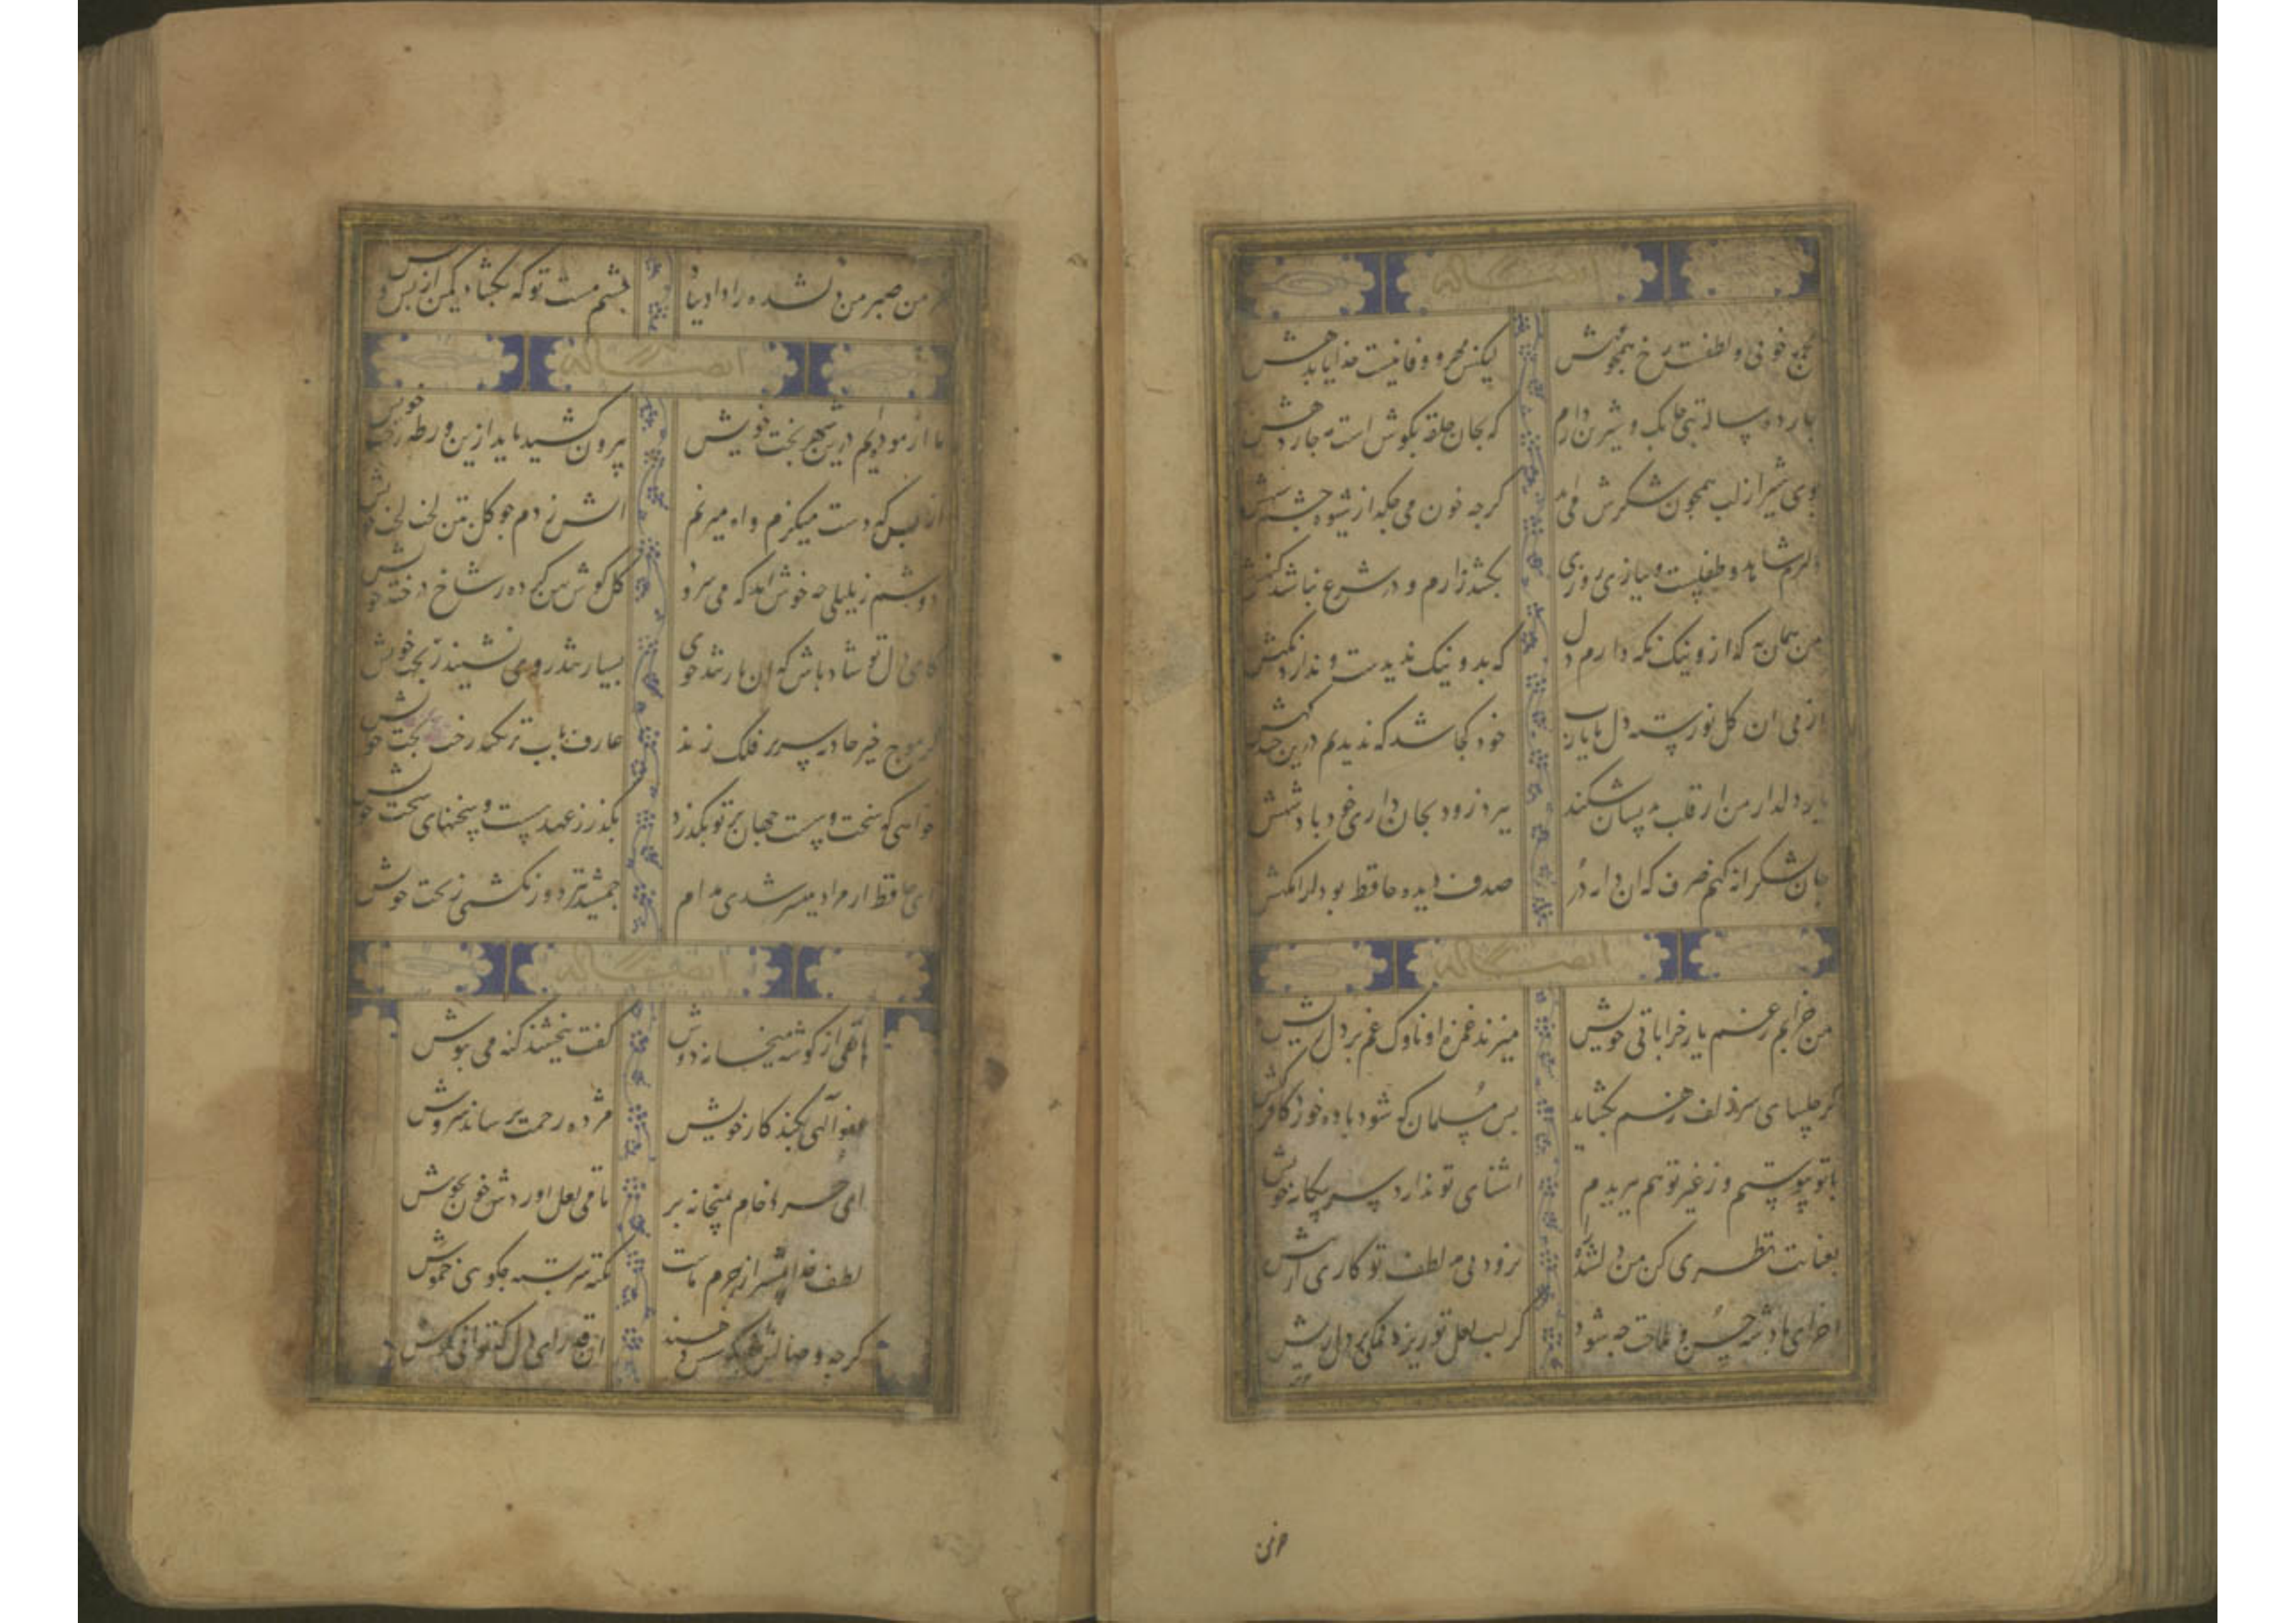 ایضا له
مجمع خوبی و لطفست رخ همچو مهش لیکنش مهر و وفا نیست خدایا بدهش
چارده ساله بتی چابک و شیرین دارم که بجان حلقه بکوش است مه چاردهش
بوی شیر از لب همچون شکرش می کرجه خون می جکد از شیوه چشم سیهش
دلبرم شاهد و طفلیست و ببازی روزی بکشد زارم و در شرع نباشد کنهش
من همان به که ازو نیک نکه دارم دل که بد و نیک ندیدست و ندارد نکهش
از پی ان کل نورسته دل ما یارب خود کجا شد که ندیدیم درین چند کهش
یار دلدار من ار قلب بدینسان شکند ببرد زود بجان داری خود پادشهش
جان بشکرانه کنم صرف که ان دانه در صدف دیده حافظ بود ارامکهش
ایضا له
من خرابم زغم یار خراباتی خویش میزند غمزه او ناوک غم بر دل ریش
کر چلیپای سر زلف زهم بکشاید بس مسلمان که شود باده خور کافر کیش
با تو پیوستم و از غیر تو هم ببریدم اشنای تو ندارد سر بیکانه خویش
بعنایت نظری کن من دلشده را نرود بی مدد لطف تو کاری از پیش
اخر ای پادشه حسن و ملاحت چه شود کر لب لعل تو ریزد نمکی بر دل ریش
خرمن
خرمن صبر من دلشده را داد بباد چشم مست تو که بکشاد کمین از پس و پیش
ایضا له
ما ازموده‌ایم درین شهر بخت خویش بیرون کشید باید ازین ورطه رخت خویش
از بس که دست میکزم و اه میزنم اتش زدم چو کل بتن لخت لخت خویش
دوشم ز بلبلی چه خوش امد که می سرود کل کوش پهن کرده ز شاخ درخت خویش
کای دل تو شاد باش که ان یار تند خوی بسیار تند روی نشیند ز بخت خویش
کر موج خیز حادثه سر بر فلک زند عارف باب تر نکند رخت بخت خویش
خواهی که سخت و سست جهان بر تو بکذرد بکذر ز عهد سست و سخنهای سخت خویش
ای حافظ ار مراد میسر شدی مدام جمشید نیز دور نکشتی ز تخت خویش
ایضا له
هاتفی از کوشه میخانه دوش کفت ببخشند کنه می بنوش
عفو آلهی بکند کار خویش مژده رحمت برساند سروش
این خرد خام بمیخانه بر تا می لعل اوردش خون بجوش
لطف خدا بیشتر از جرم ماست نکته سربسته چکویی خموش
کرچه وصالش نه بکوشش دهند ان قدر ای دل که توانی بکوش